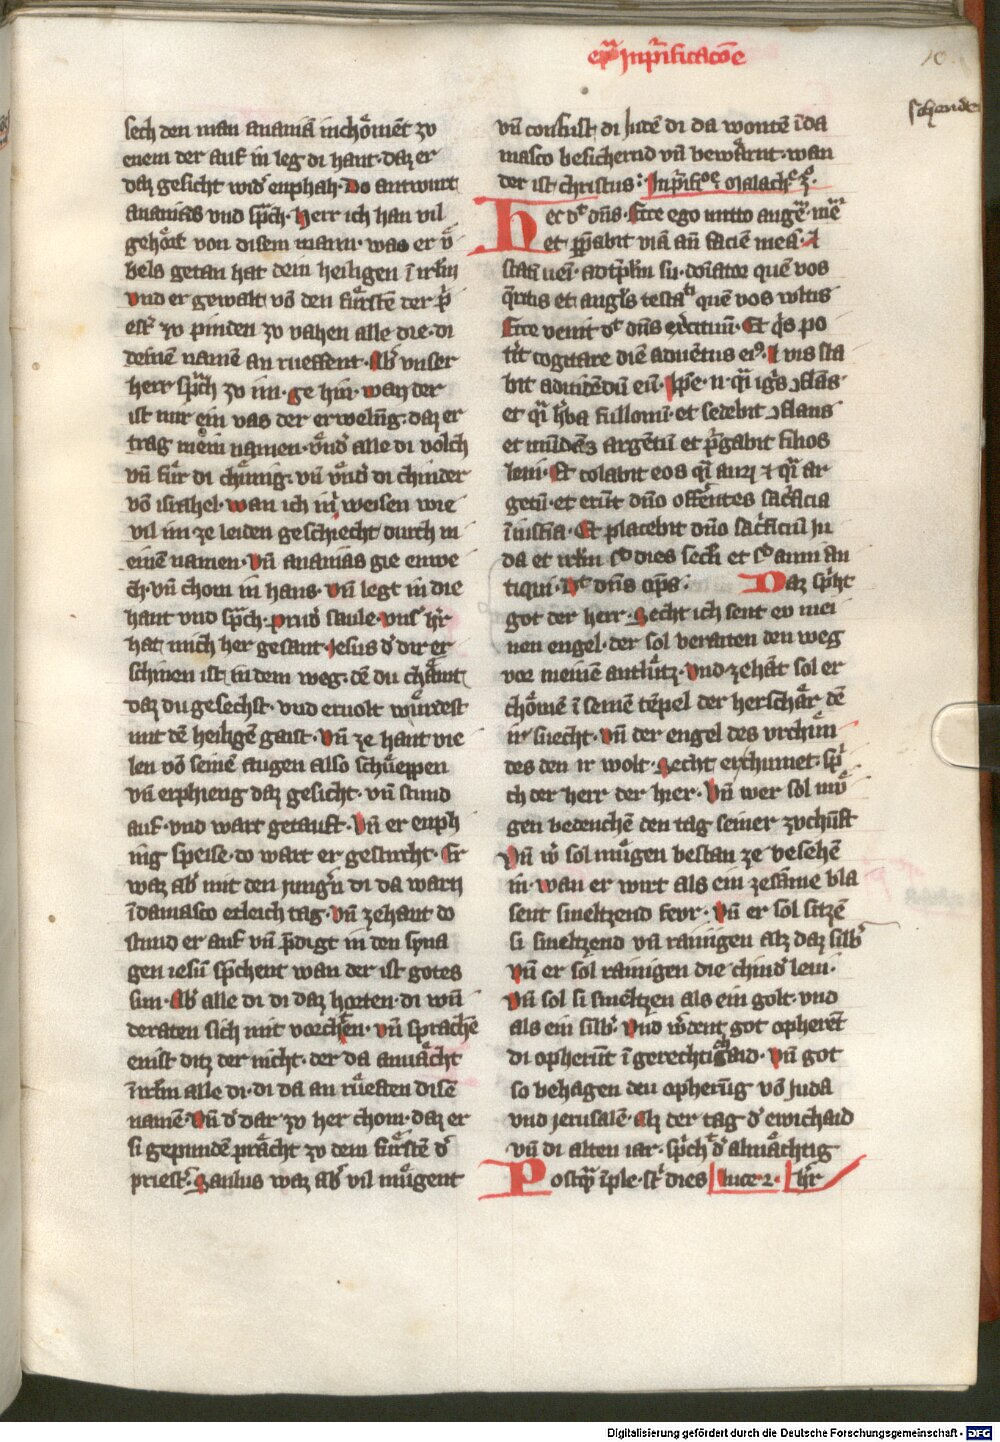 ep̄la In pͥrificacōe
10
schende
sech den man ananiā inchömēt zv
enem der auf in leg di hant· daz er
daz gesicht widˀ enphah· Do antwurt
ananias vnd spͣch· Herr ich han vil
gehört von disem mann· was er v̈
bels getan hat dein heiligen ī irlm̄
vnd er gewalt võ den fürstē der pͥ
estˀ zv pinden zv vahen alle die· di
deinē namē an rueffent· Abˀ vnser
herr spͣch zv im· ge hin· wan der
ist mir ein vas der erwelūg· daz er
trag mein namen· vndˀ alle di volch
vn̄ für di chünig· vn̄ vndˀ di chinder
võ israhel· wan ich im weisen wie
vil im ze leiden geschiecht durch m
einē namen· Vn̄ ananias gie enwe
ch· vn̄ chom in haus· Vn̄ legt in die
hant vnd spͣch· prudˀ saule· vnsˀ hˀr
hat mich her gesant· Jesus dˀ dir er
schinen ist in dem weg· dē du chāmt
daz du gesechst· vnd ervolt würdest
mit dē heiligē gaist· Vn̄ ze hant vie
len võ seinē augen also schüeppen
vn̄ erphieng daz gesicht· vn̄ stund
auf· vnd wart getauft· Vn̄ er enph
ing speise· do wart er gestercht· Er
waz abˀ mit den iungˀn di da warn
ī damasco etleich tag· Vn̄ zehant do
stund er auf vn̄ p̄digt in den syna
gen iesū sprchent wan der ist gotes
sun· Abˀ alle di di daz horten· di wū
deraten sich mit vorchten· Vn̄ sprachē
enist ditz der nicht· der da anuächt
ī irlm̄ alle di· di da an rüeften disē
namē· Vn̄ dˀ dar zv her chom· daz er
si gepundē prächt zv dem fürstē dˀ
priestˀ· Saulus waz abˀ vil mügent
vn̄ confust di iudē di da wontē ī da
masco besichernd vn̄ bewärnt· wan
der ist christus: In pͥrificōe· Malachˀ
Hec dͭ dn̄s· Ecce ego mitto angeͫ· meͫ
et pp̄abit viā an̄ faciē meā· ⁊
statī ueīˀ ad tēplm̄ suˀ· dn̄ator quē vos
q̄ritis et anglˀs testaͭi quē vos wltis
Ecce venit dͭ dn̄s exͬcituū· Et qͥs po
tˀit cogitare diē aduētus eiꝰ· ⁊ vis sta
bit ad uidēdū eū· Ipse· n· qͣi igͥs ɔflās·
et qͣi hͬba fullonū· et sedebit ɔflans
et mūdās argētū et pͬgabit filios
leui· Et colabit eos qͣi auꝝ ⁊ qͣi ar
getū· et erūt dn̄o offētes sacͥficia
ī iusticia· Et placebit dn̄o sacͥficiū iu
da et irlm̄ sͨ dies seclˀi et sͨ anni an
tiqui· Dͭ dn̄s op̄s· Daz spͥht
got der herr· Secht ich sent ev mei
nen engel· der sol beraiten den weg
vor meinē antlütz· Vnd zehāt sol er
chömē ī seinē tēpel der herschär dē
ir suecht· Vn̄ der engel des vrchün
des den ir wolt· Secht er chumet· spͥ
ch der herr der hier· Vn̄ wer sol mü
gen bedenchē den tag seiner zvchūft
Vn̄ wˀ sol mügen bestan ze besehē
in· wan er wirt als ein zesāme bla
sent smeltzend fevr· Vn̄ er sol sitzē
si smeltzend vn̄ rainigen alz daz silbˀ
Vn̄ er sol rainigen die chindˀ leui·
Vn̄ sol si smeltzen als ein golt· vnd
als ein silbˀ· Vnd wˀdent got opherēt
di opherūt ī gerechtichaid· Vn̄ got
so behagen den opherūg võ Juda
vnd jerusalē· Alz der tag dˀ ewichaid
vn̄ di alten iar· spͥch dˀ almächtig
Postqͣ īple· sͭ dies luce· 2· hˀr
Digitalisierung gefördert durch die Deutsche Forschungsgemeinschaft - DFG